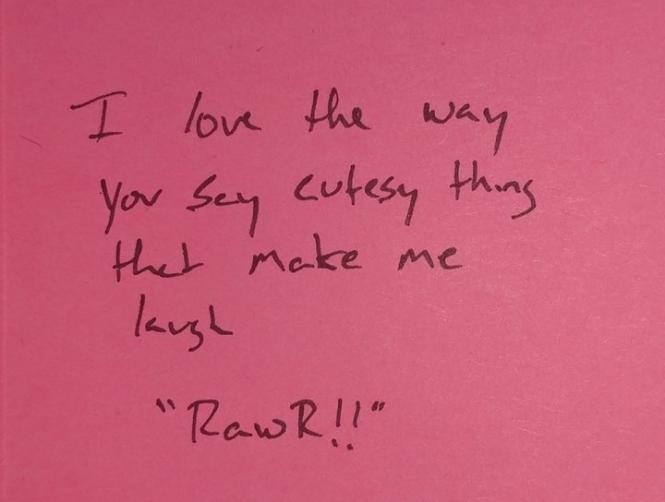 I love the way
you say cutesy things
that make me
laugh
"RawR!!"